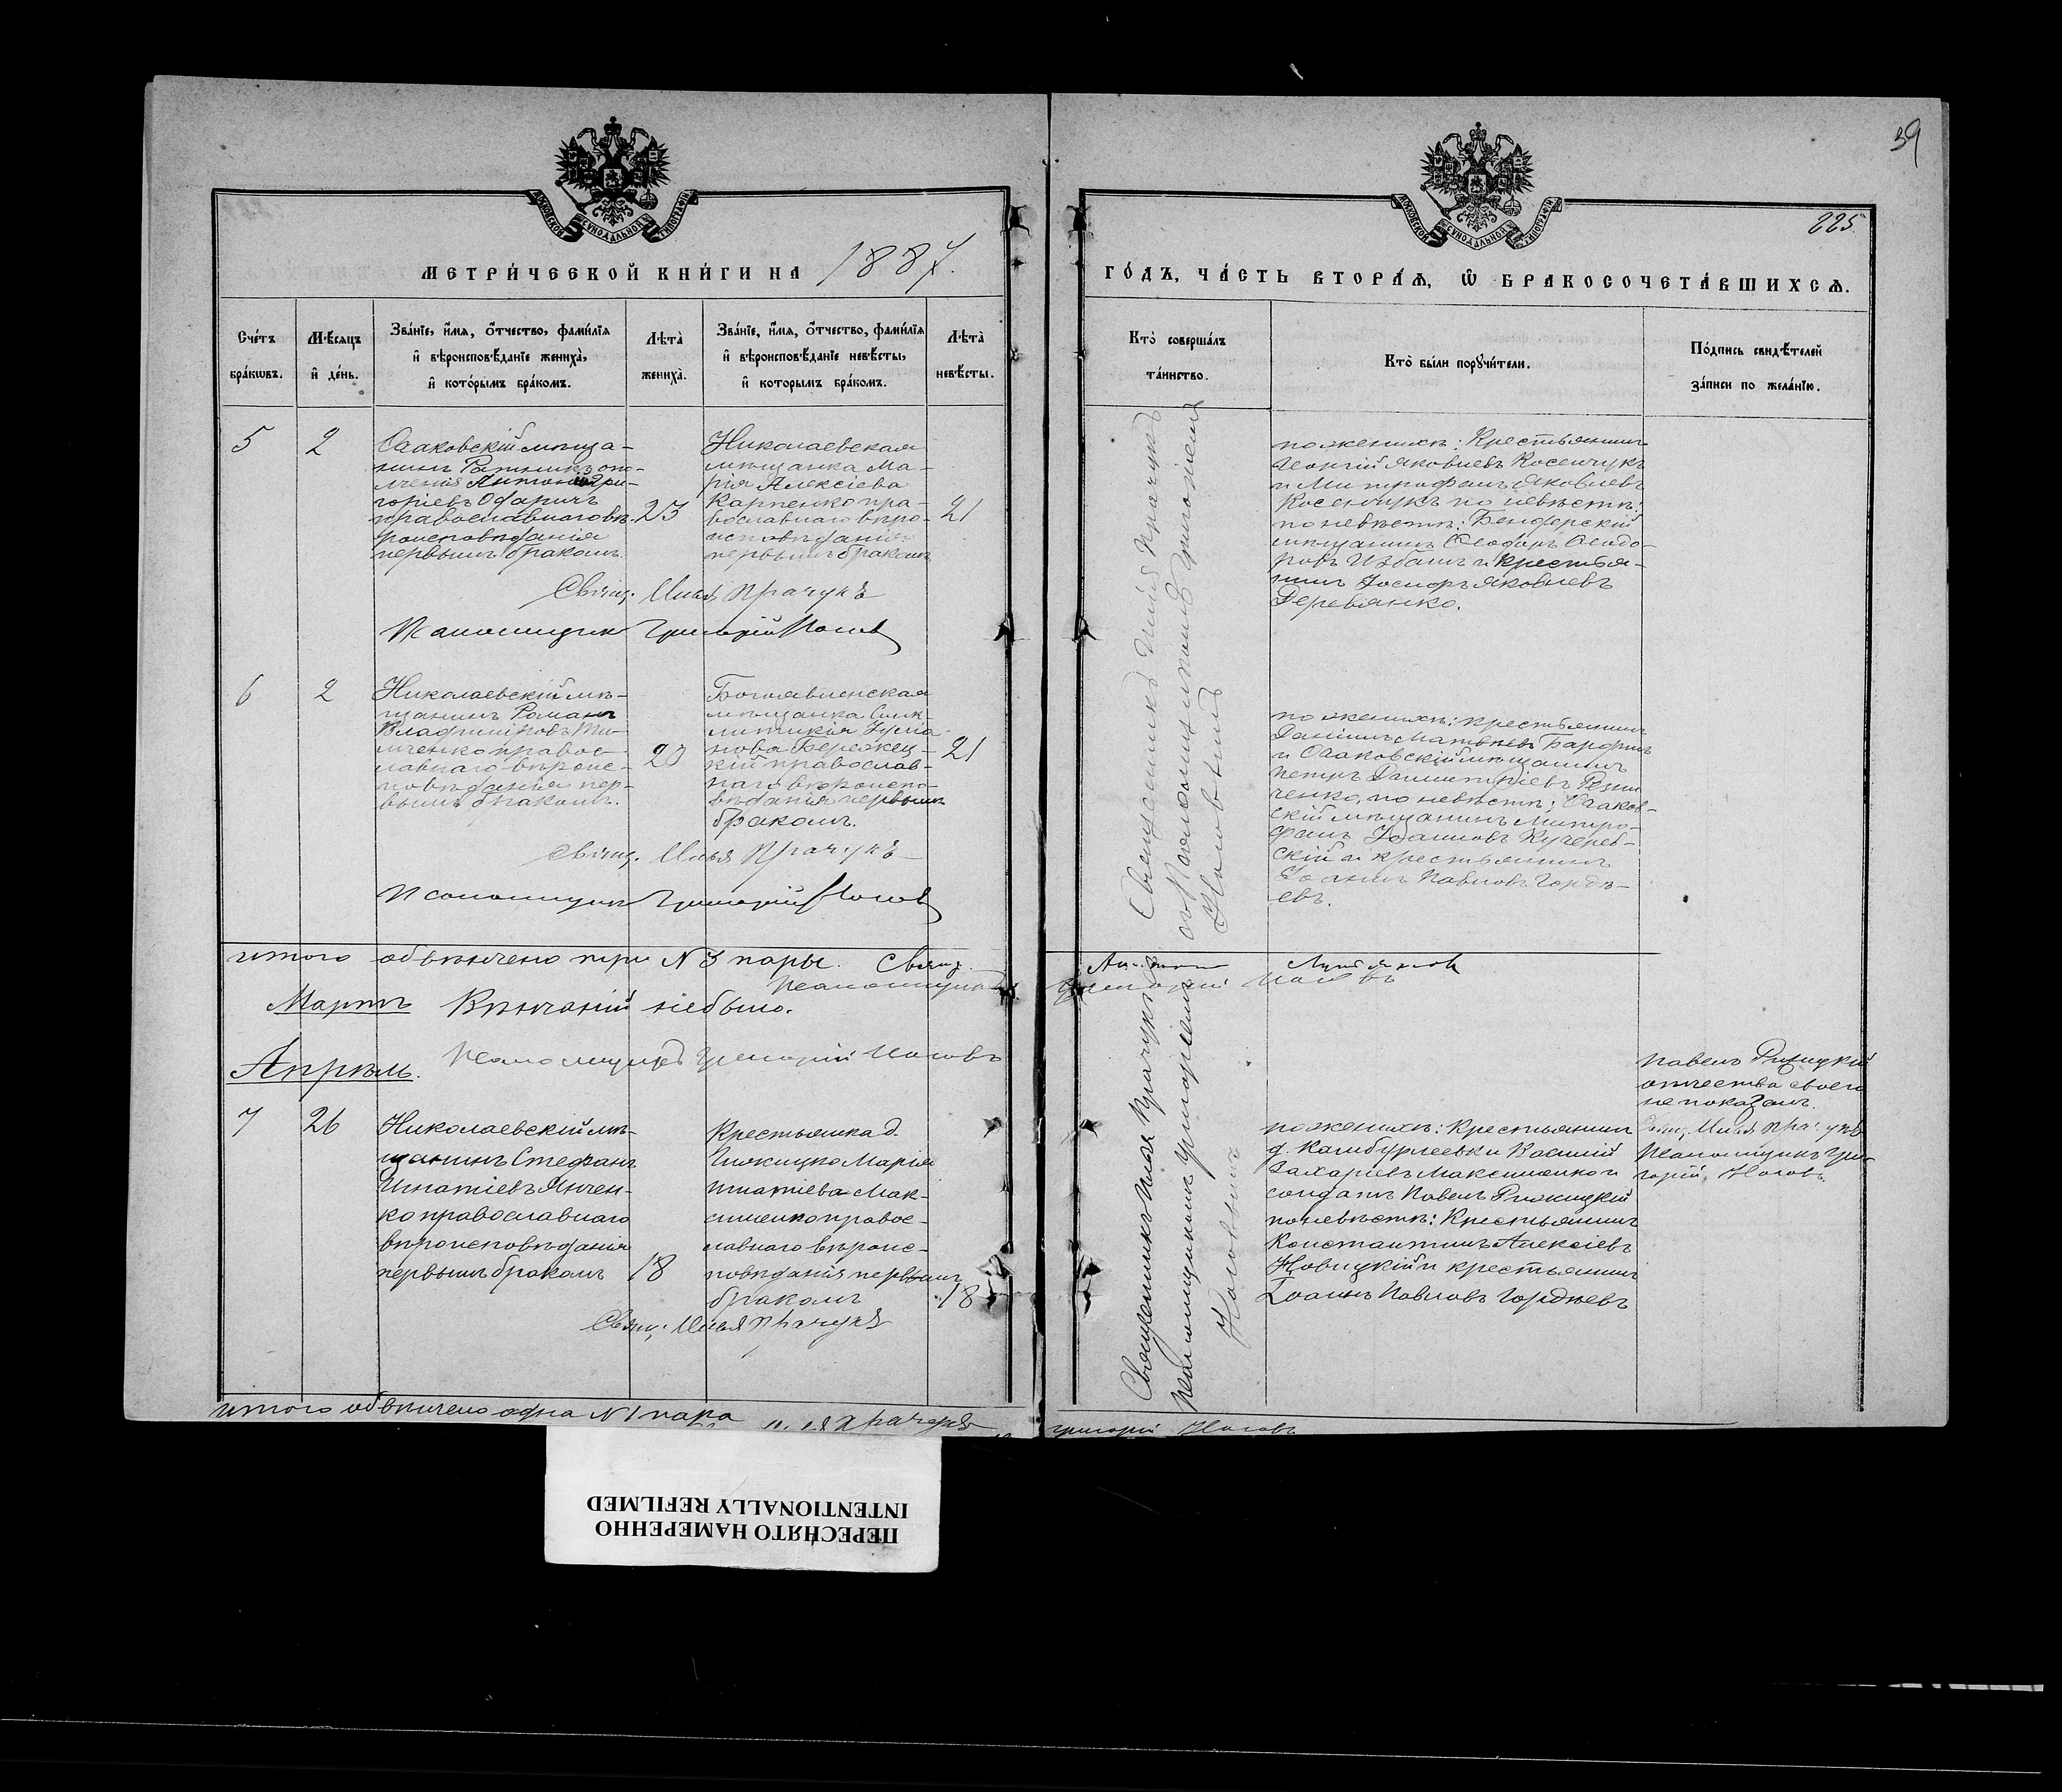 39
225.
МЕТРИ́ЧЕСКОЙ КНИ́ГИ НА 1887.
ГО́ДЪ, ЧА́СТЬ ВТОРА́Я, Ѡ БРАКОСОЧЕТА́ВШИХСЯ.
Сче́тъ
бра́кѡвъ.
Мѣ́сяцъ
и҆ де́нь.
Зва́нїе, и҆́мя, ѻ҆́тчество, фами́лїя
и҆ вѣроисповѣ́данїе жениха̀,
и҆ кото́рымъ бра́комъ.
Лѣта̀
жениха̀.
Зва́нїе, и҆́мя, ѻ҆́тчество, фами́лїя
и҆ вѣроисповѣ́данїе невѣ́сты,
и҆ которымъ бра́комъ.
Лѣта̀
невѣ́сты.
Кто̀ соверша́лъ
та́инство.
Кто̀ бы́ли порꙋчи́тели.
По́дпись свидѣ́телей
за́писи по жела́нїю.
5
2
Очаковскій мѣща-
нинъ Ратникъ опо-
лченія Антоній Гри-
горіевъ
православнаго вѣ-
роисповѣданія
первымъ бракомъ
23
Николаевская
мѣщанка Ма-
рія Алексіева
Карпенко пра-
вославнаго вѣро-
исповѣданія
первымъ бракомъ
21
Свящ. Илья Прачукъ
Псаломщик Григорій Носовъ
по женихѣ: Крестьянинъ
Георгій Яковлевъ Косенчукъ
и Митрофанъ Яковлевъ
Косенчукъ по невѣстѣ:
по невѣстѣ: Бендерскій
мѣщанинъ Ѳеодоръ Ѳеодо-
ровъ Избашъ и Крестья-
нинъ Іосифъ Яковлевъ
Деревянко.
Священникъ Илія Прачукъ
съ Псаломщикомъ Григоріемъ
Носовымъ
6
2
Николаевскій мѣ-
щанинъ Романъ
Владиміровъ
православ-
лавнаго вѣроис-
повѣданія пер-
вымъ бракомъ.
23
Богоявленская
мѣщанка Синк-
литикія
нова Бережец-
кій православ-
наго вѣроиспо-
вѣданія первымъ
бракомъ.
21
Свящ. Илья Прачукъ
Псаломщикъ Григорій Носовъ
по женихѣ: крестьянинъ
Даніилъ Матвѣевъ
и Очаковскій мѣщанинъ
Петръ Димитріевъ Резни
ченко, по невѣстѣ: Очаков-
скій мѣщанинъ Митро-
фанъ Іоанновъ Кучерев-
скій и крестьянинъ
Іоаннъ Павловъ Гордѣ-
евъ.
итого обвѣнчено три N 3 пары. Свящ.
Псаломщикъ Григорій Носовъ
Мартъ Вѣнчаній небыло.
Псаломщикъ Григорій Носовъ
Апрѣль.
7
26
Николаевскій мѣ-
щанинъ Стефанъ
Игнатіевъ Янчен-
ко православнаго
вѣроисповѣданія
первымъ бракомъ
18
Крестьянка д.
Марія
Игнатіева Мак-
сименко правос-
лавнаго вѣроис-
повѣданія первымъ
бракомъ
18
Свящ. Илья Прачукъ
Священникъ Илья Прачукъ съ
Псаломщикомъ Григоріемъ
Носовымъ
по женихѣ: Крестьянинъ
д. Камбурлеевки Василій
Захаріевъ Максименко и
солдатъ Павелъ
по невѣстѣ: Крестьянинъ
Константинъ Алексіевъ
Новицкій и крестьянинъ
Іоаннъ Павловъ Гордѣевъ
Павелъ
отчества своего
не показалъ.
Свящ. Илья Прачукъ
Псаломщикъ Гри-
горій Носовъ.
итого обвѣнчено одна N 1 пара Илья Прачукъ
Григорій Носовъ
ПЕРЕСНЯТО НАМЕРЕННО
INTENTIONALLY REFILMED